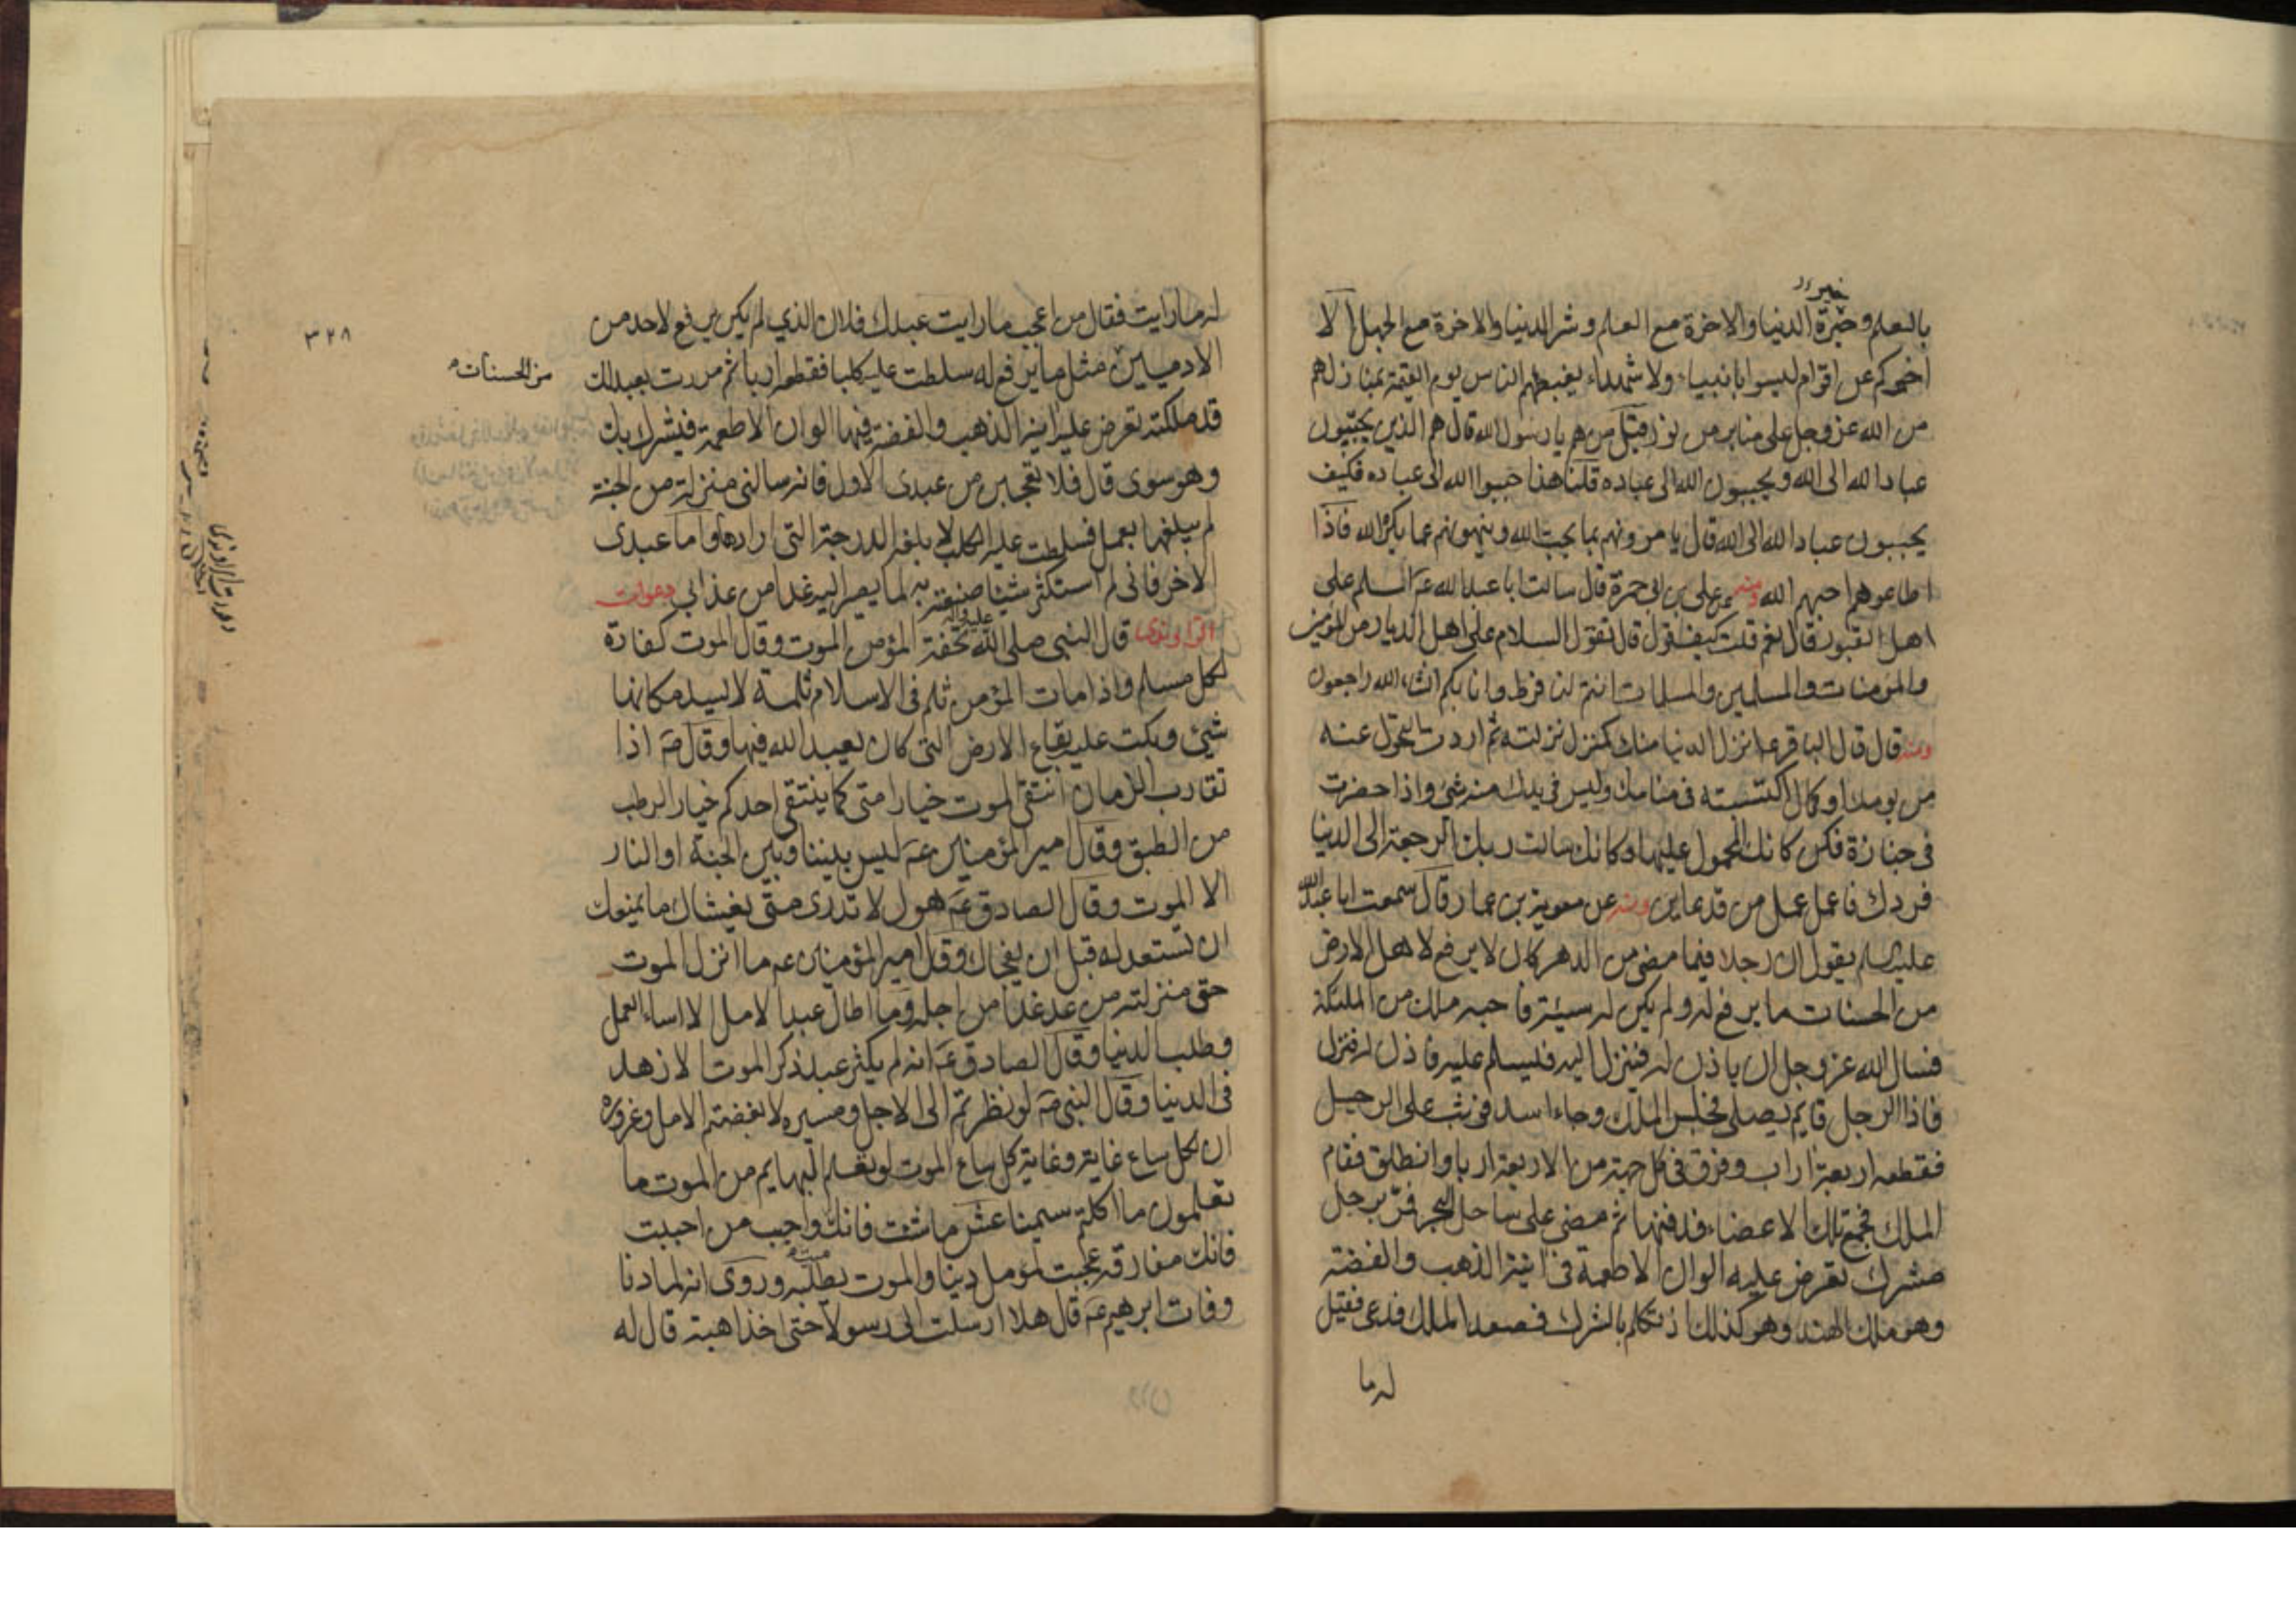 خير
بالعلم وخيرة الدنيا والاخرة مع العلم وشر الدنيا والاخرة مع الجهل الا
اخبركم عن اقوام ليسوا بانبياء ولا شهداء يغبطهم الناس يوم القيمة بمنازلهم
من الله عز وجل على منابر من نور فقيل من هم يا رسول الله قال هم الذين يحببون
عباد الله الى الله ويحببون الله الى عباده قلنا هذا حببوا الله الى عباده فكيف
يحببون عباد الله الى الله قال يامرونهم بما يحب الله وينهونهم عما يكره الله فاذا
اطاعوهم احبهم الله ومنه عن على بن ابى حمزة قال سالت ابا عبد الله ع السلم على
اهل القبور قال نعم قلت كيف نقول قال تقول السلام على اهل الديار من المؤمنين
والمؤمنات والمسلمين والمسلمات انتم لنا فرط وانا بكم انشاء الله راجعون
ومنه قال قال الباقر ع انزل الدنيا منك كمنزل نزلته ثم اردت التحول عنه
من يومك او كمال اكتسبته فى منامك وليس فى يدك منه شئ واذا حضرت
فى جنازة فكن كانك المحمول عليها وكانك سالت ربك الرجعة الى الدنيا
فردك فاعمل عمل من قد عاين ومنه عن معوية بن عمار قال سمعت ابا عبد الله
عليه السلم يقول ان رجلا فيما مضى من الدهر كان لا يرفع لاهل الارض
من الحسنات ما يرفع له ولم يكن له سيئة فاحبه ملك من الملئكة
فسال الله عز وجل ان ياذن له فينزل اليه فليسلم عليه فاذن له فنزل
فاذا الرجل قايم يصلى فجلس الملك وجاء اسد فوثب على الرجل
فقطعه اربعة اراب وفرق فى كل جهة من الاربعة اربا وانطلق فقام
الملك فجمع تلك الاعضاء فدفنها ثم مضى على ساحل البحر فمر برجل
مشرك تعرض عليه الوان الاطعمة فى انية الذهب والفضة
وهو ملك الهند وهو كذلك اذ تكلم بالشرك فصعد الملك فدعى فقيل
له ما
٣٢٨
له ما رايت فقال من اعجب ما رايت عبدك فلان الذي لم يكن يرفع لاحد من
الادميين مثل ما يرفع له سلطت عليه كلبا فقطعه اربا ثم مررت بعبد لك
من الحسنات
قد ملكته تعرض عليه انية الذهب والفضة فيها الوان الاطعمة فيشرك بك
وهو سوى قال فلا تعجبن من عبدى الاول فانه سالنى منزلة من الجنة
لم يبلغها بعمل فسلطت عليه الكلب لابلغه الدرجة التى ارادها واما عبدى
الاخر فانى لم استكثر شيئا صنعته به لما يصير اليه غدا من عذابى دعوات
الراوندى قال النبى صلى الله عليه واله تحفة المؤمن الموت وقال الموت كفارة
لكل مسلم واذا مات المؤمن ثلم فى الاسلام ثلمة لا يسد مكانها
شئ وبكت عليه بقاع الارض التى كان يعبد الله فيها وقال ص اذا
تقارب الزمان انتقى الموت خيار امتى كما ينتقى احدكم خيار الرطب
من الطبق وقال امير المؤمنين ع ليس بيننا وبين الجنة او النار
الا الموت وقال الصادق ع هول لا تدرى متى يغشاك ما يمنعك
ان تستعد له قبل ان يفجاك وقال امير المؤمنين ع ما انزل الموت
حق منزلته من عد غدا من اجله وما اطال عبد الامل الا اساء العمل
وطلب الدنيا وقال الصادق ع انه لم يكثر عبد ذكر الموت الا زهد
فى الدنيا وقال النبى ص لو نظرتم الى الاجل ومسيره لابغضتم الامل وغروره
ان لكل ساع غاية وغاية كل ساع الموت لو تعلم البهايم من الموت ما
تعلمون ما اكلتم سمينا عش ما شئت فانك واحبب من احببت
ميت
فانك مفارقه عجبت لمؤمل دنيا والموت يطلبه وروى انه لما دنا
وفات ابرهيم ع قال هلا ارسلت الى رسولا حتى اخذ اهبة قال له